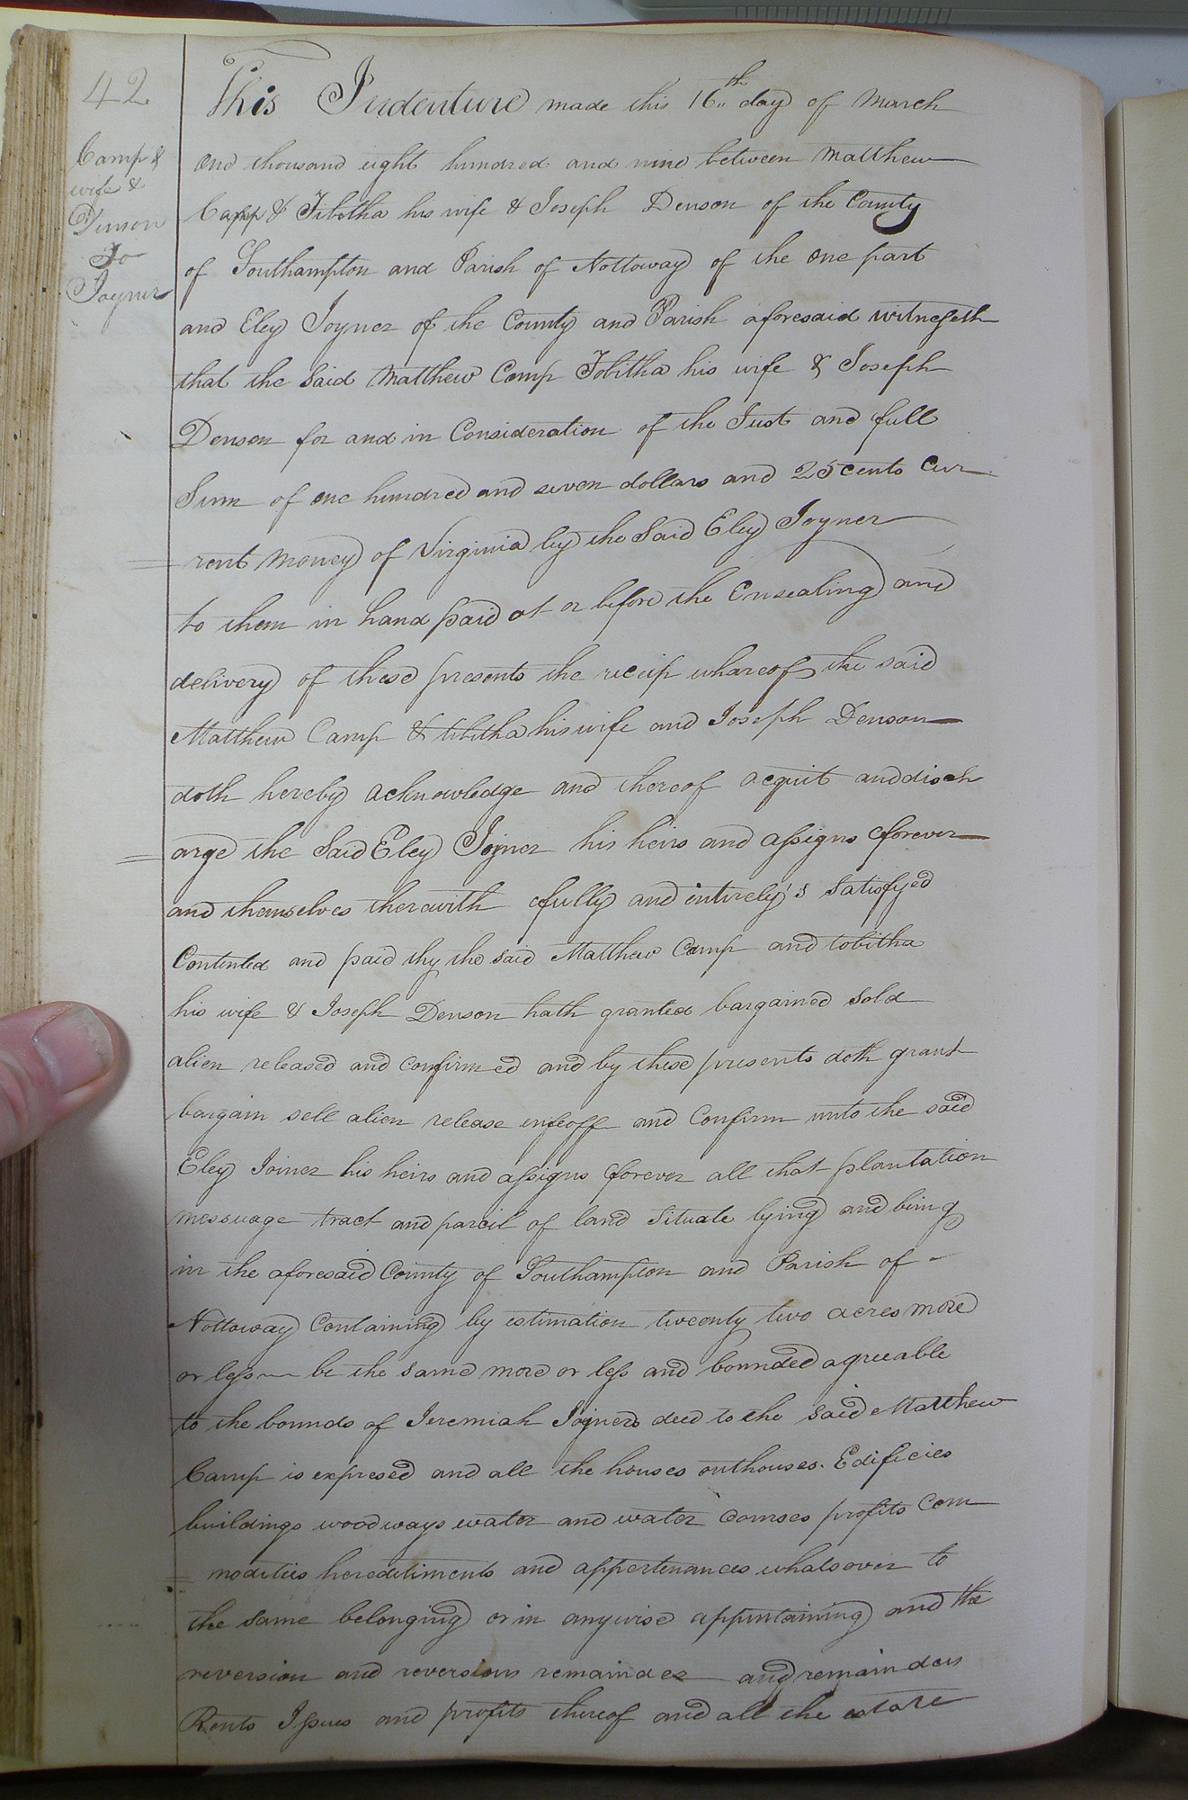 42
Camp &
wife &
Denson
To
Joyner
This Indenture made this 16th day of March
one thousand eight hundred and nine between Matthew
Camp & Tibitha his wife & Joseph Denson of the County
of Southampton and Parish of Nottoway of the one part
and Eley Joyner of the County and Parish aforesaid witnesseth
that the Said Matthew Camp Tobitha his wife & Joseph
Denson for and in Consideration of the Just and full
Sum of one hundred and seven dollars and 25 cents Cur
= rent money of Virginia by the Said Eley Joyner
to them in hand paid at or before the Ensealing and
delivery of these presents the receip whareof the said
Matthew Camp & tibitha his wife and Joseph Denson
doth hereby acknowledge and thereof acquit and disch
= arge the Said Eley Joyner his heirs and assigns forever
and themselves therewith fully and intirely's Satisfyed
Contented and paid thy the said Matthew Camp and tobitha
his wife & Joseph Denson hath granted bargained Sold
alien released and confirmed and by these presents doth grant
bargain sell alien release infeoff and Confirm unto the said
Eley Joiner his heirs and assigns forever all that plantation
messuage tract and parcil of land Situate lying and being
in the aforesaid County of Southampton and Parish of -
Nottoway Containing by estimation tweenty two acres more
or less be the same more or less and bounded agreeable
to the bounds of Jeremiah Joyners deed to the Said Matthew
Camp is expresed and all the houses outhouses. Edificies
buildings woodways water and water Courses profits Com
= modities hereditiments and appertenances whatsover to
the same belonging or in anywise appurtaining and the
reversion and reversions remainder and remainders
Rents Issues and profits thereof and all the estate